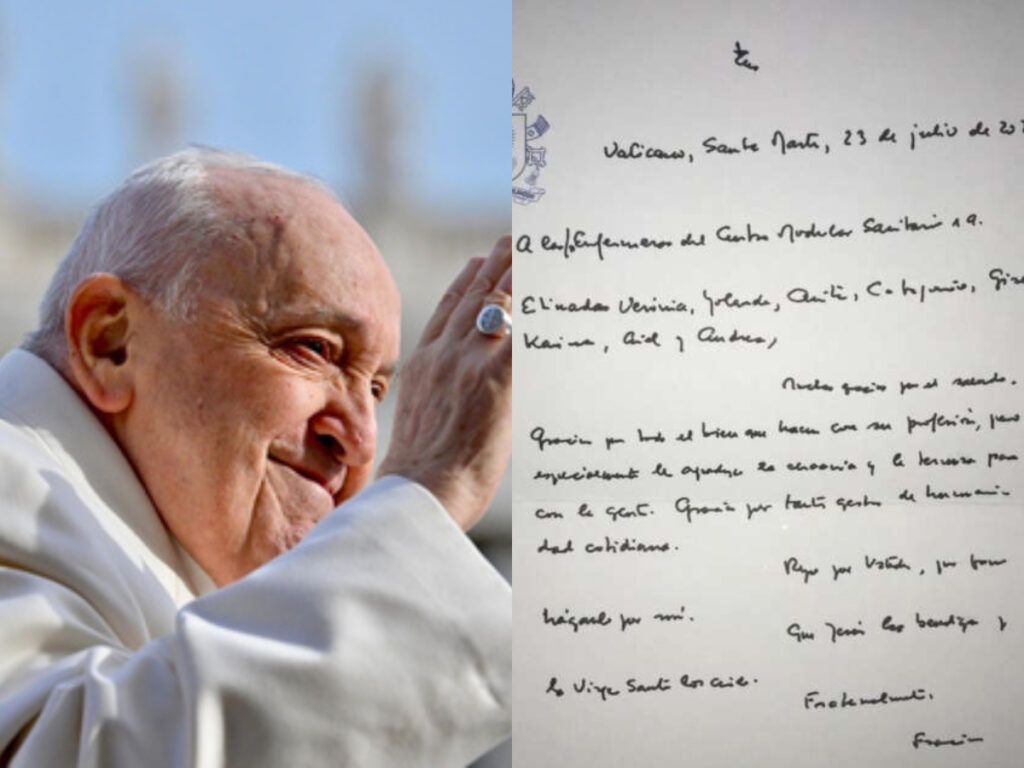 Vaticano, Santa Marta, 23 de julio de
A Enfermeros del Centro Modular Sanitario
Yolanda, Anita,
Karina, Ariel y Andrea,
Muchas gracias por el saludo.
Gracias por todo el bien que hacen con su profesión, pero
especialmente la cercanía y la ternura para
con la gente. Gracias por tanto gesto de humani
dad cotidiana.
Rezo por Ustedes, por favor
háganlo por mí.
Que Jesús los bendiga y
la Virgen Santa los cuide.
Fraternalmente,
Francisco